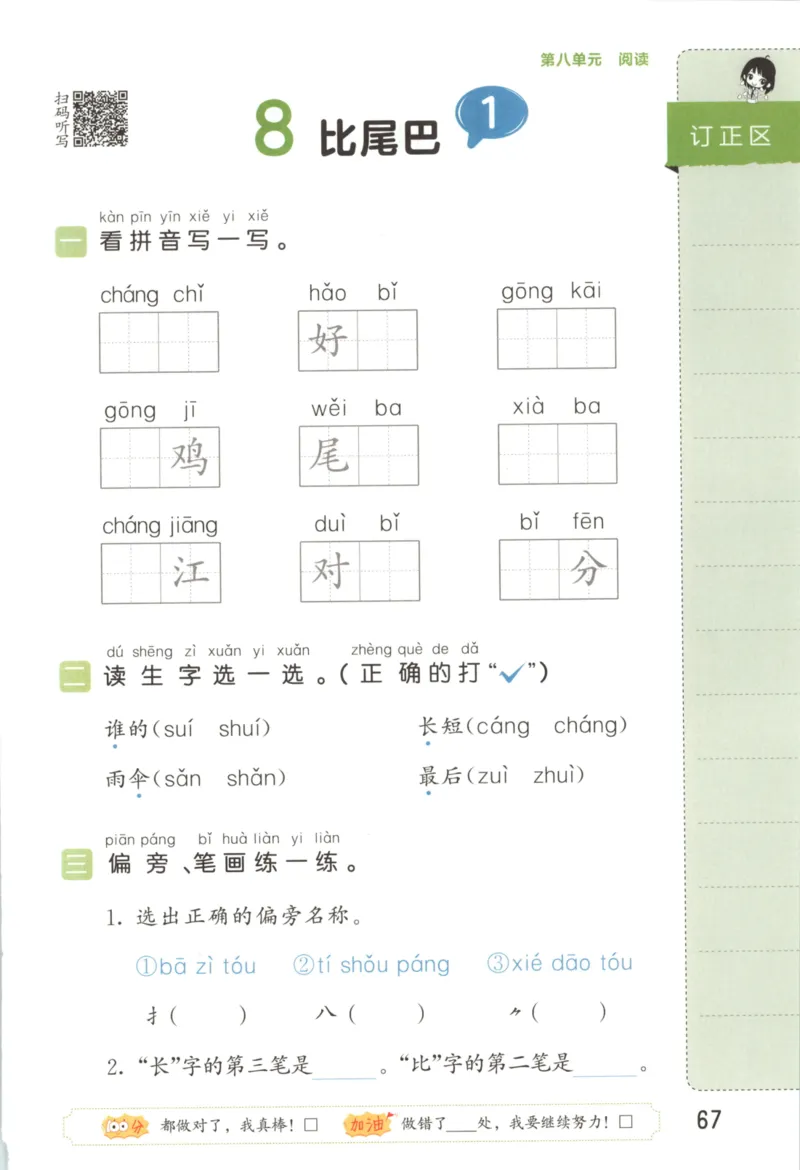 第八单元 阅读
扫码听写
8 比尾巴 1
订正区
kàn pīn yīn xiě yi xiě
一 看拼音写一写。
cháng chǐ hǎo bǐ gōng kāi
好
gōng jī wěi ba xià ba
鸡 尾
cháng jiāng duì bǐ bǐ fēn
江 对 分
dú shēng zì xuǎn yi xuǎn zhèng què de dǎ
二 读生字选一选。(正确的打“✓”)
谁的(suí shuí) 长短(cáng cháng)
雨伞(sǎn shǎn) 最后(zuì zhuì)
piān páng bǐ huà liàn yi liàn
三 偏旁、笔画练一练。
1. 选出正确的偏旁名称。
①bā zì tóu ②tí shǒu páng ③xié dāo tóu
扌( ) 八( ) ⺈( )
2. “长”字的第三笔是____。“比”字的第二笔是____。
100分 都做对了，我真棒！□ 加油 做错了___处，我要继续努力！□
67